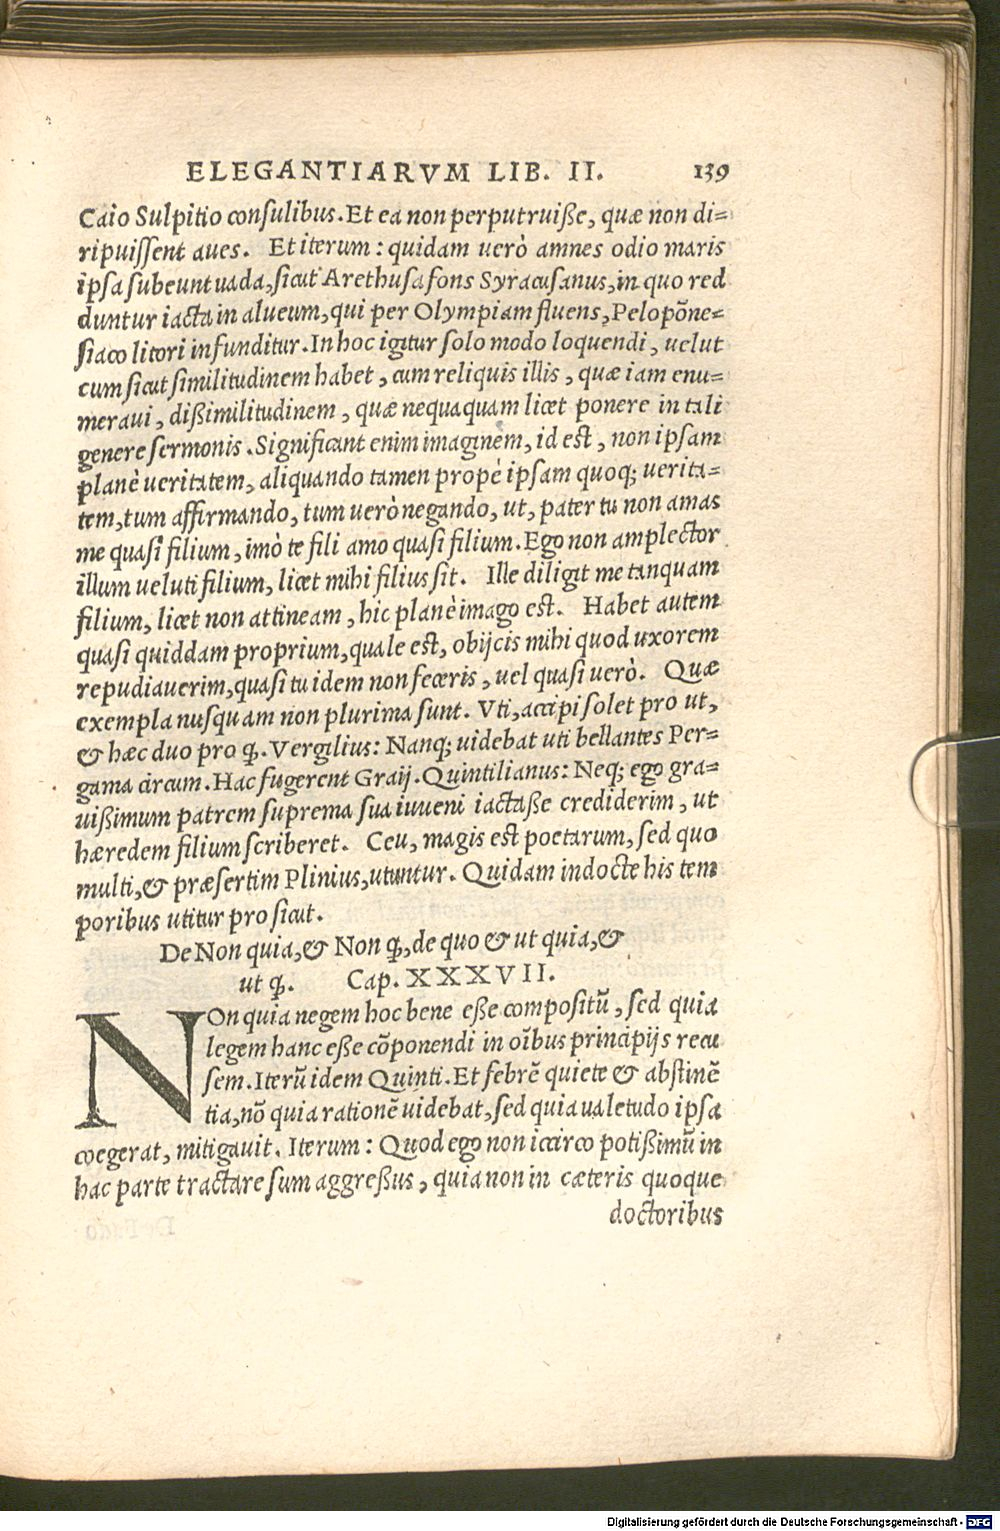 ELEGANTIARVM LIB. II. 139
Caio Sulpitio consulibus. Et ea non perputruiße, quæ non di=
ripuissent aues. Et iterum: quidam uerò amnes odio maris
ipsa subeunt uada, sicut Arethusa fons Syracusanus, in quo red
duntur iacta in alueum, qui per Olympiam fluens, Pelopõne=
siaco litori infunditur. In hoc igitur solo modo loquendi, uelut
cum sicut similitudinem habet, cum reliquis illis, quæ iam enu=
meraui, dißimilitudinem, quæ nequaquam licet ponere in tali
genere sermonis. Significant enim imaginem, id est, non ipsam
planè ueritatem, aliquando tamen propè ipsam quoq; uerita=
tem, tum affirmando, tum uerò negando, ut, pater tu non amas
me quasi filium, imò te fili amo quasi filium. Ego non amplector
illum ueluti filium, licet mihi filius sit. Ille diligit me tanquam
filium, licet non attineam, hic planè imago est. Habet autem
quasi quiddam proprium, quale est, obijcis mihi quod uxorem
repudiauerim, quasi tu idem non feceris, uel quasi uerò. Quæ
exempla nusquam non plurima sunt. Vti, accipi solet pro ut,
& hæc duo pro ꝙ. Vergilius: Nanq; uidebat uti bellantes Per=
gama circum. Hac fugerent Graij. Quintilianus: Neq; ego gra=
uißimum patrem suprema sua iuueni iactaße crediderim, ut
hæredem filium scriberet. Ceu, magis est poetarum, sed quo
multi, & præsertim Plinius, utuntur. Quidam indocte his tem
poribus utitur pro sicut.
De Non quia, & Non ꝙ, de quo & ut quia, &
ut ꝙ. Cap. XXXVII.
NOn quia negem hoc bene eße compositũ, sed quia
legem hanc eße cõponendi in oĩbus principijs recu
sem. Iterũ idem Quinti. Et febrẽ quiete & abstinẽ
tia, nõ quia rationẽ uidebat, sed quia ualetudo ipsa
coegerat, mitigauit. Iterum: Quod ego non icirco potißimũ in
hac parte tractare sum aggreßus, quia non in cæteris quoque
doctoribus
Digitalisierung gefördert durch die Deutsche Forschungsgemeinschaft - DFG